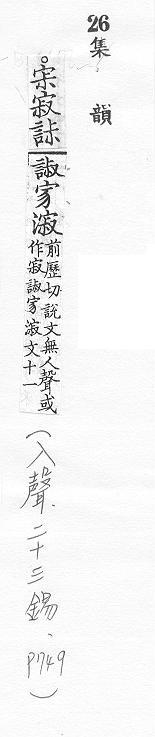 26集韻
。宗寂誴
諔家漃
前歷切說文無人聲或
作寂諔家漃文十一
(入聲、二十三錫、P749)